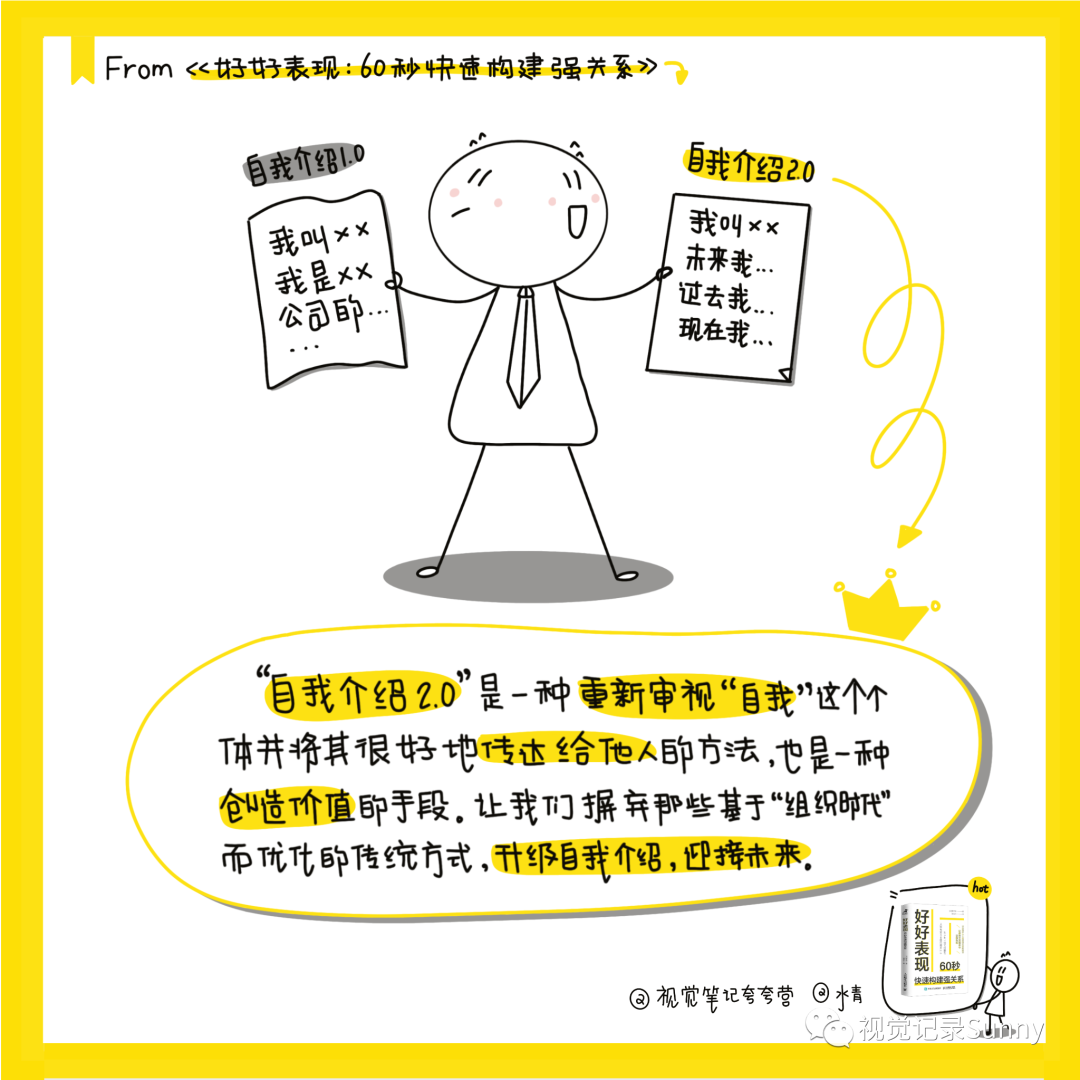 From《好好表现：60秒快速构建强关系》
自我介绍1.0
我叫××
我是××
公司的...
...
自我介绍2.0
我叫××
未来我...
过去我...
现在我...
“自我介绍2.0”是一种重新审视“自我”这个个
体并将其很好地传达给他人的方法，也是一种
创造价值的手段。让我们摒弃那些基于“组织时代”
而优化的传统方式，升级自我介绍，迎接未来。
hot
好好表现
60秒
快速构建强关系
@视觉笔记夸夸营 @水青
视觉记录Sunny